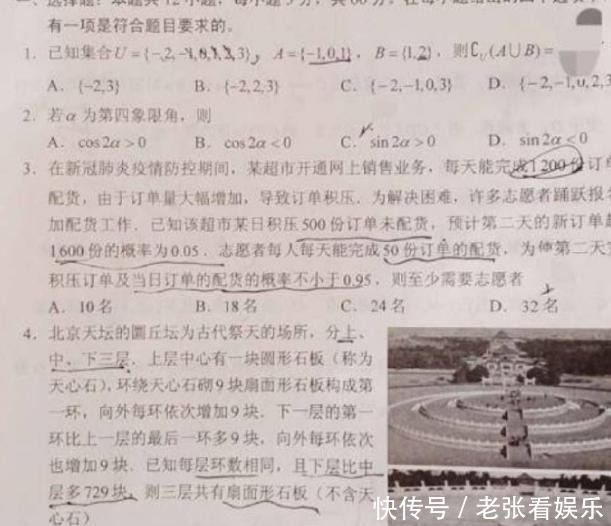 选择题：本题共12小题，每小题5分，共60分。在每小题给出的四个选项
有一项是符合题目要求的。
1. 已知集合U={-2,-1,0,1,2,3}，A={-1,0,1}，B={1,2}，则∁U(A∪B)=
A. {-2,3} B. {-2,2,3} C. {-2,-1,0,3} D. {-2,-1,0,2,3
2. 若α为第四象限角，则
A. cos2α>0 B. cos2α<0 C. sin2α>0 D. sin2α<0
3. 在新冠肺炎疫情防控期间，某超市开通网上销售业务，每天能完成1200份订
配货，由于订单量大幅增加，导致订单积压．为解决困难，许多志愿者踊跃报
加配货工作．已知该超市某日积压500份订单未配货，预计第二天的新订单
1600份的概率为0.05．志愿者每人每天能完成50份订单的配货，为使第二天
积压订单及当日订单的配货的概率不小于0.95，则至少需要志愿者
A. 10名 B. 18名 C. 24名 D. 32名
4. 北京天坛的圜丘坛为古代祭天的场所，分上、
中、下三层．上层中心有一块圆形石板（称为
天心石），环绕天心石砌9块扇面形石板构成第
一环，向外每环依次增加9块．下一层的第一
环比上一层的最后一环多9块，向外每环依次
也增加9块．已知每层环数相同，且下层比中
层多729块，则三层共有扇面形石板（不含天
心石）
快传号／老张看娱乐